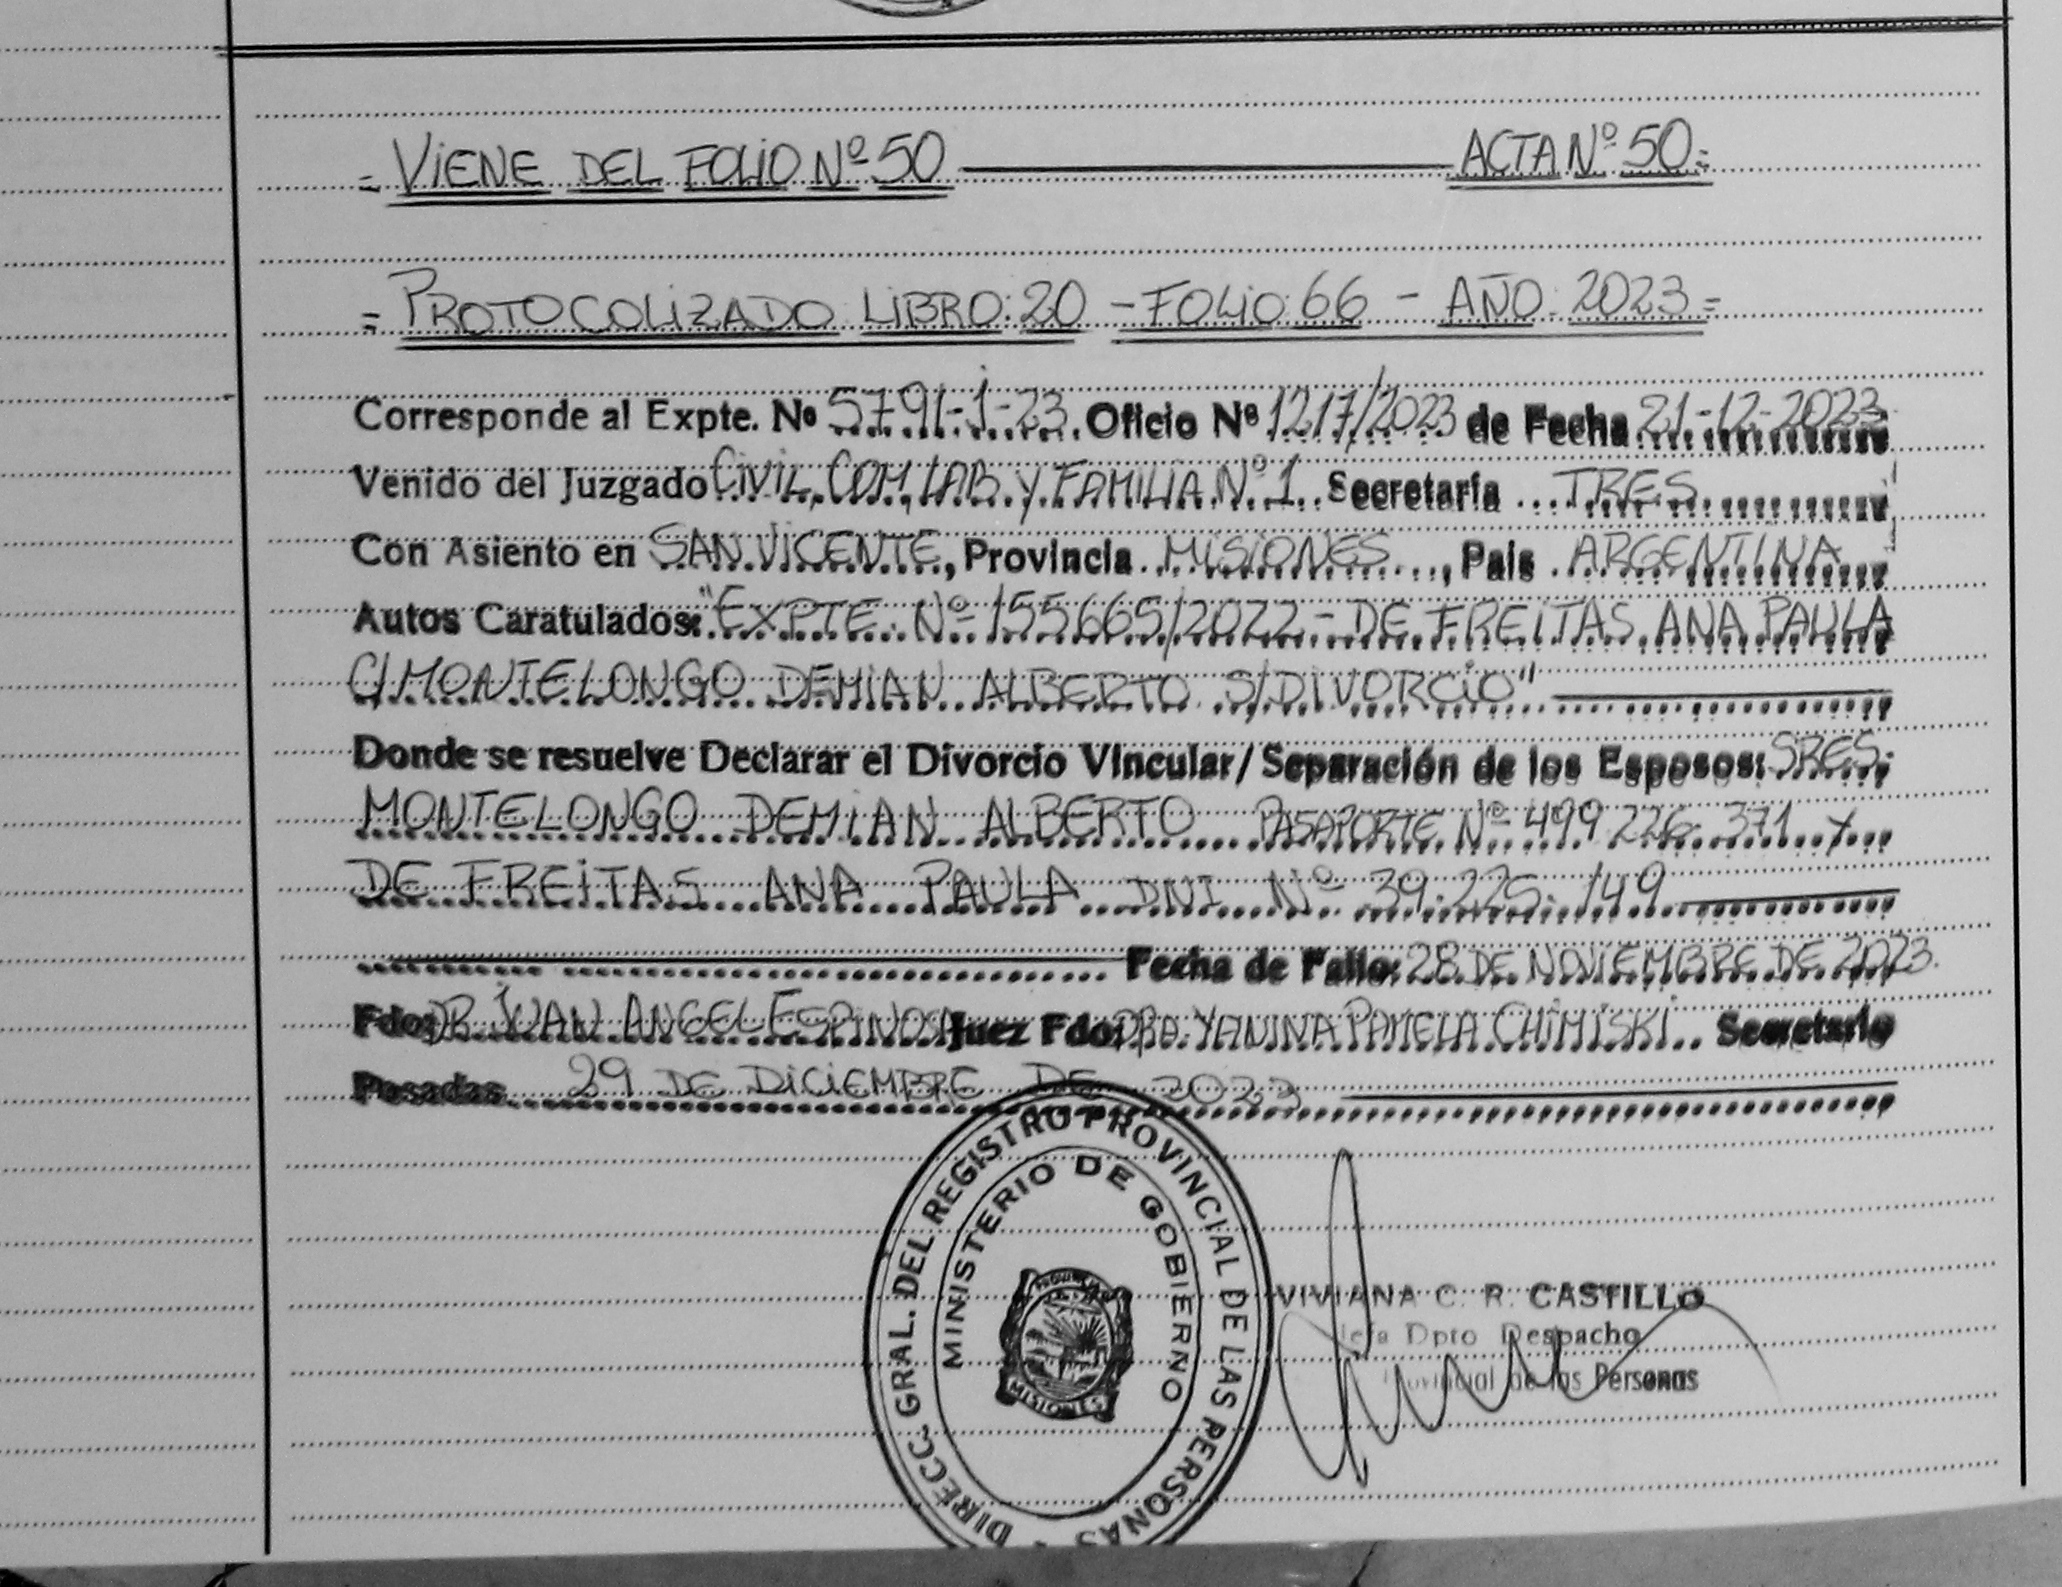 = VIENE DEL FOLIO Nº 50 ACTA Nº 50 =
= PROTOCOLIZADO LIBRO: 20 - FOLIO: 66 - AÑO: 2023 =
Corresponde al Expte. Nº 5791-1-23. Oficio Nº 1217/2023 de Fecha 21-12-2023
Venido del Juzgado CIVIL, COM, LAB. Y FAMILIA Nº 1. Secretaría TRES
Con Asiento en SAN VICENTE, Provincia MISIONES, País ARGENTINA
Autos Caratulados: "EXPTE. Nº 155665/2022 - DE FREITAS ANA PAULA
C/ MONTELONGO DEMIAN ALBERTO S/DIVORCIO"
Donde se resuelve Declarar el Divorcio Vincular/Separación de los Esposos: SRES.
MONTELONGO DEMIAN ALBERTO PASAPORTE Nº 499.226.371 Y
DE FREITAS ANA PAULA DNI Nº 39.225.149
Fecha de Fallo: 28 DE NOVIEMBRE DE 2023.
Fdo: DR. JUAN ANGEL ESPINOSA Juez Fdo: DRA. YANINA PAMELA CHIMISKI. Secretario
Posadas 29 DE DICIEMBRE DE 2023
DIRECC. GRAL. DEL REGISTRO PROVINCIAL DE LAS PERSONAS
MINISTERIO DE GOBIERNO
MISIONES
VIVIANA C. R. CASTILLO
Jefa Dpto Despacho
Provincial de las Personas